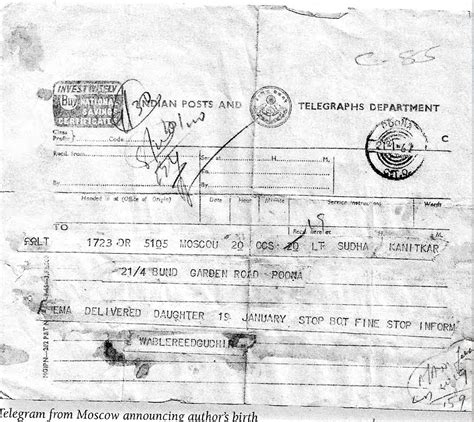 INVEST WISELY
Buy NATIONAL
SAVING
CERTIFICATES
INDIAN POSTS AND TELEGRAPHS DEPARTMENT
C-55
POONA
21-1-62
C.T.O.
C
Class
Prefix Code
Recd. from Sent at H. M.
To
By
Handed in at (Office of Origin) Date Service Instructions Words
Recd. here at H. M.
TO
LT 1723 DR 5105 MOSCOU 20 OCS 20 LT SUDHA KANITKAR
21/4 BUND GARDEN ROAD POONA
DELIVERED DAUGHTER 19 JANUARY STOP BOT FINE STOP INFORM
WABLEREEDGUCHIN
Telegram from Moscow announcing author's birth